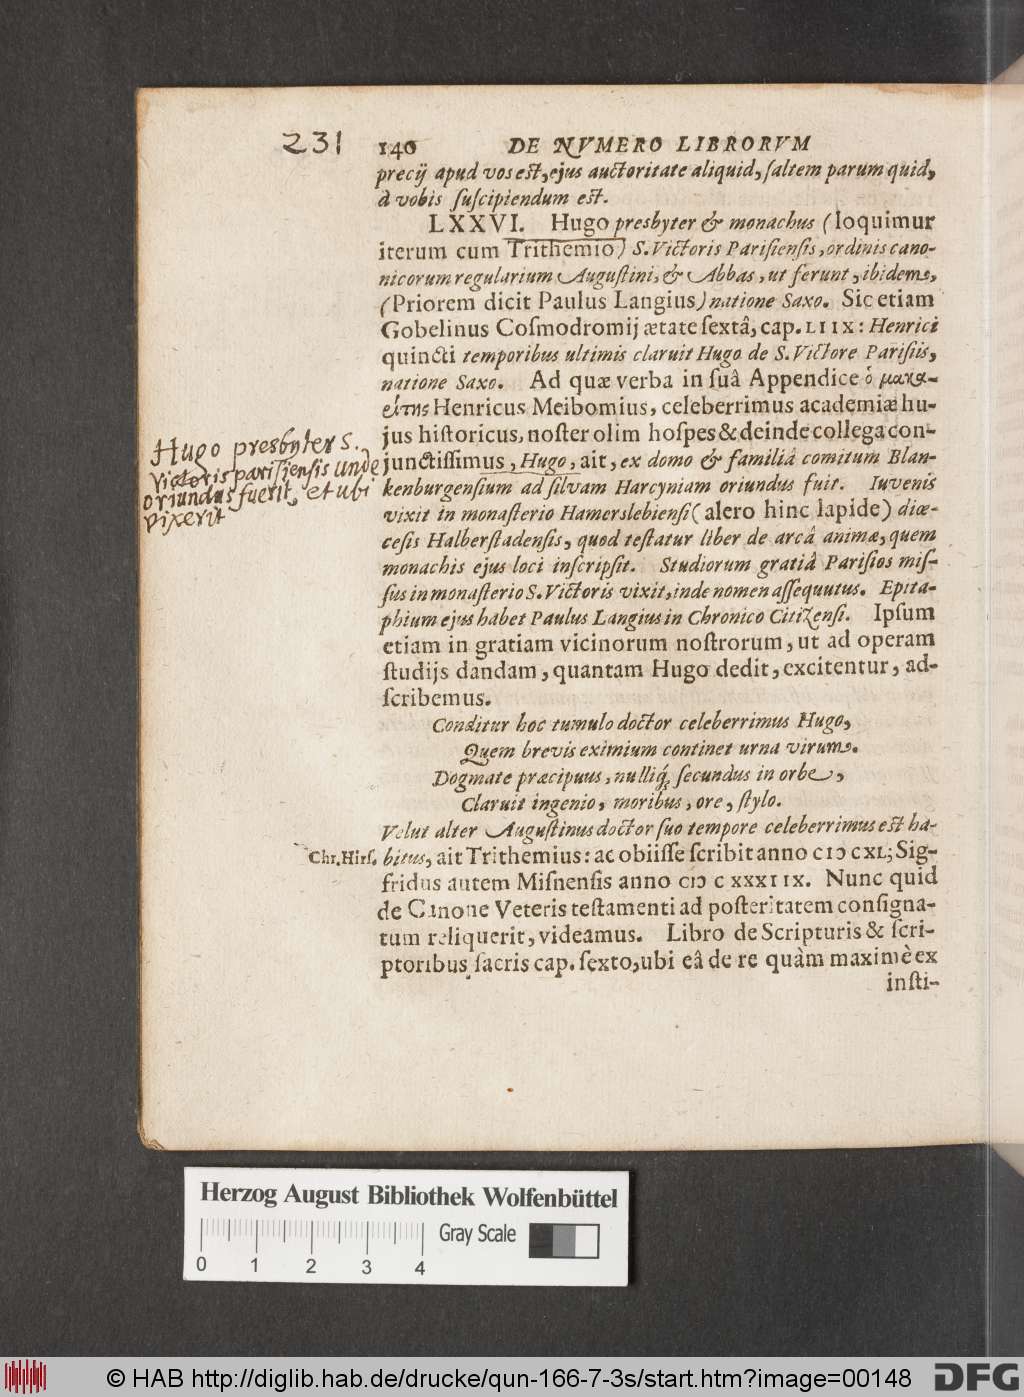 231
140 DE NVMERO LIBRORVM
precij apud vos est, ejus auctoritate aliquid, ſaltem parum quid,
à vobis ſuſcipiendum est.
LXXVI. Hugo presbyter & monachus (loquimur
iterum cum Trithemio) S. Victoris Pariſienſis, ordinis cano-
nicorum regularium Auguſtini, & Abbas, ut ferunt, ibidem,
(Priorem dicit Paulus Langius) natione Saxo. Sic etiam
Gobelinus Coſmodromij ætate ſextâ, cap. LIIX: Henrici
quincti temporibus ultimis claruit Hugo de S. Victore Pariſiis,
natione Saxo. Ad quæ verba in ſuâ Appendice ὁ μακα-
είτης Henricus Meibomius, celeberrimus academiæ hu-
jus hiſtoricus, noſter olim hoſpes & deinde collega con-
junctiſſimus, Hugo, ait, ex domo & familiâ comitum Blan-
kenburgenſium ad ſilvam Harcyniam oriundus fuit. Iuvenis
vixit in monaſterio Hamerslebienſi (alero hinc lapide) diœ-
ceſis Halberſtadenſis, quod teſtatur liber de arcâ animæ, quem
monachis ejus loci inſcripſit. Studiorum gratiâ Pariſios miſ-
ſus in monaſterio S. Victoris vixit, inde nomen aſſequutus. Epita-
phium ejus habet Paulus Langius in Chronico Citizenſi. Ipſum
etiam in gratiam vicinorum noſtrorum, ut ad operam
ſtudijs dandam, quantam Hugo dedit, excitentur, ad-
ſcribemus.
Conditur hoc tumulo doctor celeberrimus Hugo,
Quem brevis eximium continet urna virum.
Dogmate præcipuus, nulliq́; ſecundus in orbe,
Claruit ingenio, moribus, ore, ſtylo.
Velut alter Auguſtinus doctor ſuo tempore celeberrimus est ha-
bitus, ait Trithemius: ac obiiſſe ſcribit anno CIↃ CXL; Sig-
fridus autem Miſnenſis anno CIↃ C XXXIIX. Nunc quid
de Canone Veteris teſtamenti ad poſteritatem conſigna-
tum reliquerit, videamus. Libro de Scripturis & ſcri-
ptoribus ſacris cap. ſexto, ubi eâ de re quàm maximè ex
inſti-
Hugo presbyter S.
Victoris pariſienſis unde
oriundus fuerit, et ubi
vixerit
Chr. Hirſ.
Herzog August Bibliothek Wolfenbüttel
Gray Scale
0 1 2 3 4
© HAB http://diglib.hab.de/drucke/qun-166-7-3s/start.htm?image=00148
DFG